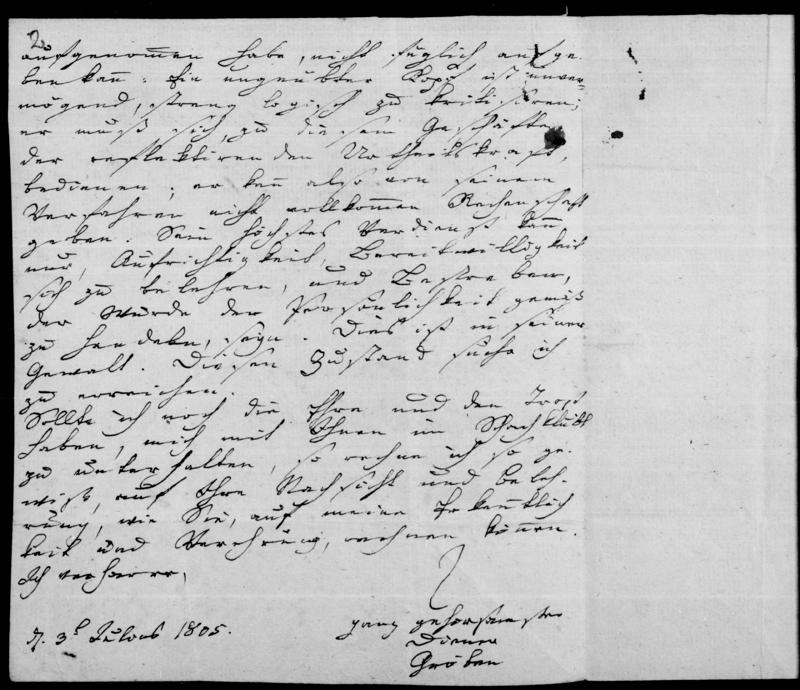 2.
aufgenommen habe, nicht füglich aufge-
ben kann: Ein ungeübter Kopf ist unver-
mögend, streng logisch zu kritisiren;
er muß sich, zu diesem Geschäfte
der reflektirenden Urtheilskraft,
bedienen; er kan also von seinem
Verfahren nicht vollkommen Rechenschaft
geben. Sein höchstes Verdienst kann
nur, Aufrichtigkeit, Bereitwilligkeit
sich zu belehren, und Bestreben,
der Würde der Persönlichkeit gemäß
zu handeln, seyn. Dies ist in seiner
Gewalt. Diesen Zustand suche ich
zu erreichen.
Sollte ich noch die Ehre und den Trost
haben, mich mit Ihnen im Schachklubb
zu unterhalten, so rechne ich so ge-
wiß, auf Ihre Nachsicht und Beleh-
rung, wie Sie, auf meine Erkenntlich
keit und Verehrung, rechnen können.
Ich verharre,
ganz gehorsamster
d. 3t Julius 1805.
Diener
Gröben